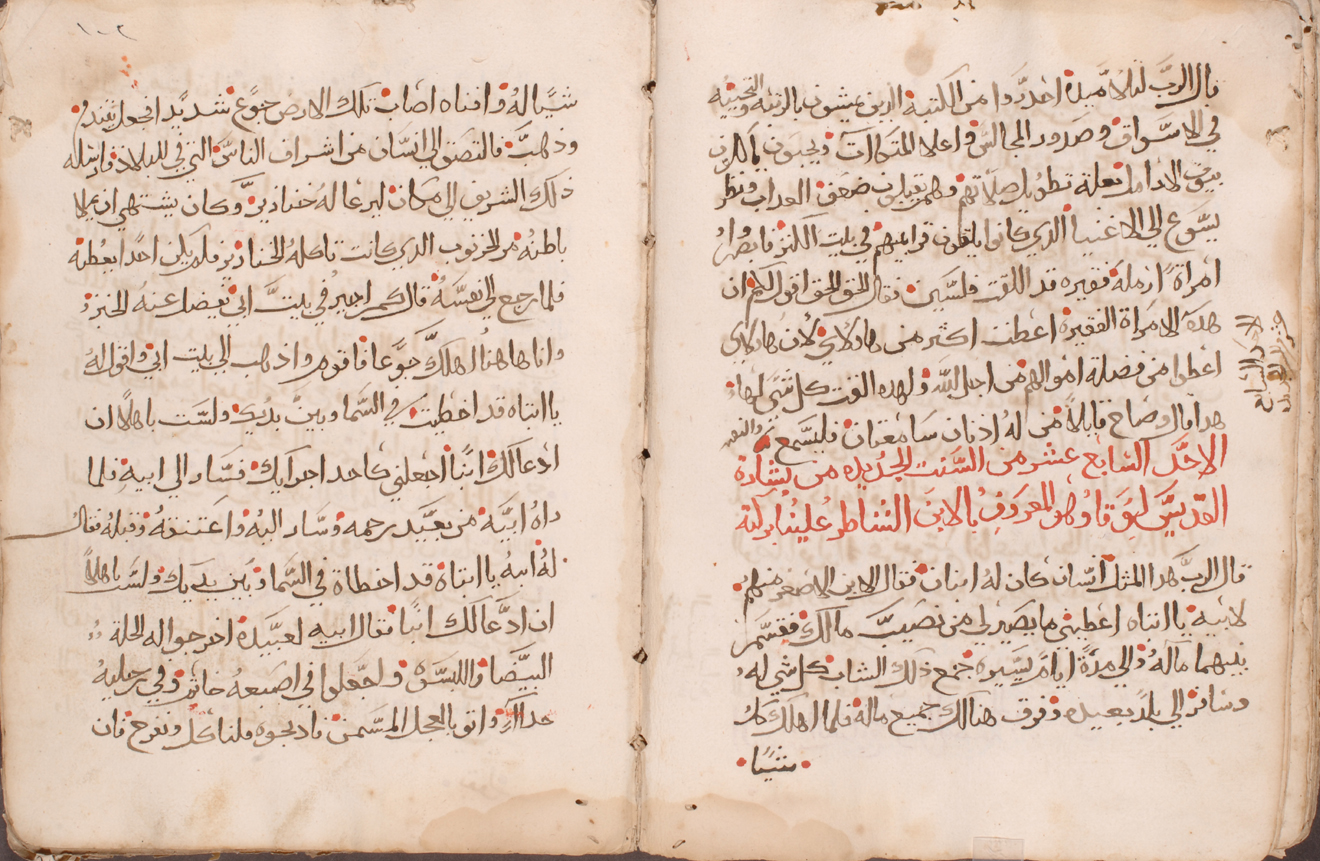 قال الرب لتلاميده احدروا من الكتبة الدين يمشون بالزينه والتحيه
في الاسواق وصدور المجالس واعلا المتكاات ويحبون ياكلون
بيوت الارامل بعلة تطويل صلاتهم وهم يقبلون ضعف العداب ونظر
يسوع الي الاغنيا الدي كانوا يلقون قرابينهم في بيت الكنز فابصر
امراة ارملة فقيره قد القت فلسين فقال الحق الحق اقول لكم ان
هده الامراة الفقيره اعطت اكثر من هاولاي لان هاولاي
اعطوا من فضلة اموالهم من اجل الله وهده القت كل شي لها
هدا قال وصاح قايلاً من له ادنان سامعتان فليسمع
الاحد السابع عشر من السنت الجديده من بشارة
القديس لوقا وهو المعروف بالابن الشاطر علينا بركته
قال الرب هدا المثل انسان كان له ابنان فقال الابن الاصغر منهم
لابيه يا ابتاه اعطيني ما يصير لي من نصيب مالك فقسم
بينهما ماله والي مدة ايام يسيره جمع ذلك الشاب كل شي له
وسافر الي بلد بعيده وفرق هنالك جميع ماله فلما اهلك كل
شيئا
الاحد السابع
١٠٢
شيئا له وافناه اصاب تلك الارض جوع شديد
ودهب فالتصق الي انسان من اشراف الناس التي في البلاد فارسله
ذلك الشريف الي مكان ليرعا له خنازير وكان يشتهي ان يملا
باطنه من الخرنوب الدي كانت تاكله الخنازير فلم يكن احدا يعطيه
فلما رجع الي نفسه قال كم اجير في بيت ابي يفضل عنه الخبز
وانا هاهنا اهلك جوعا فاقوم واذهب الي بيت ابي واقول له
يا ابتاه قد اخطيت في السما وبين يديك ولست باهلاً ان
ادعا لك ابنا اجعلني كاحد اجرايك فسار الي ابيه فلما
راه ابيه من بعيد رحمه وسار اليه واعتنقه وقبله فقال
له ابنه يا ابتاه قد اخطاة في السما وبين يديك ولست باهلاً
ان ادعا لك ابنا فقال ابيه لعبيده اخرجوا له الحلة
البيضا واللبسوه واجعلوا في اصبعه خاتم وفي رجليه
حدا واتو بالعجل المسمن فادبحوه فلناكل ونفرح فان